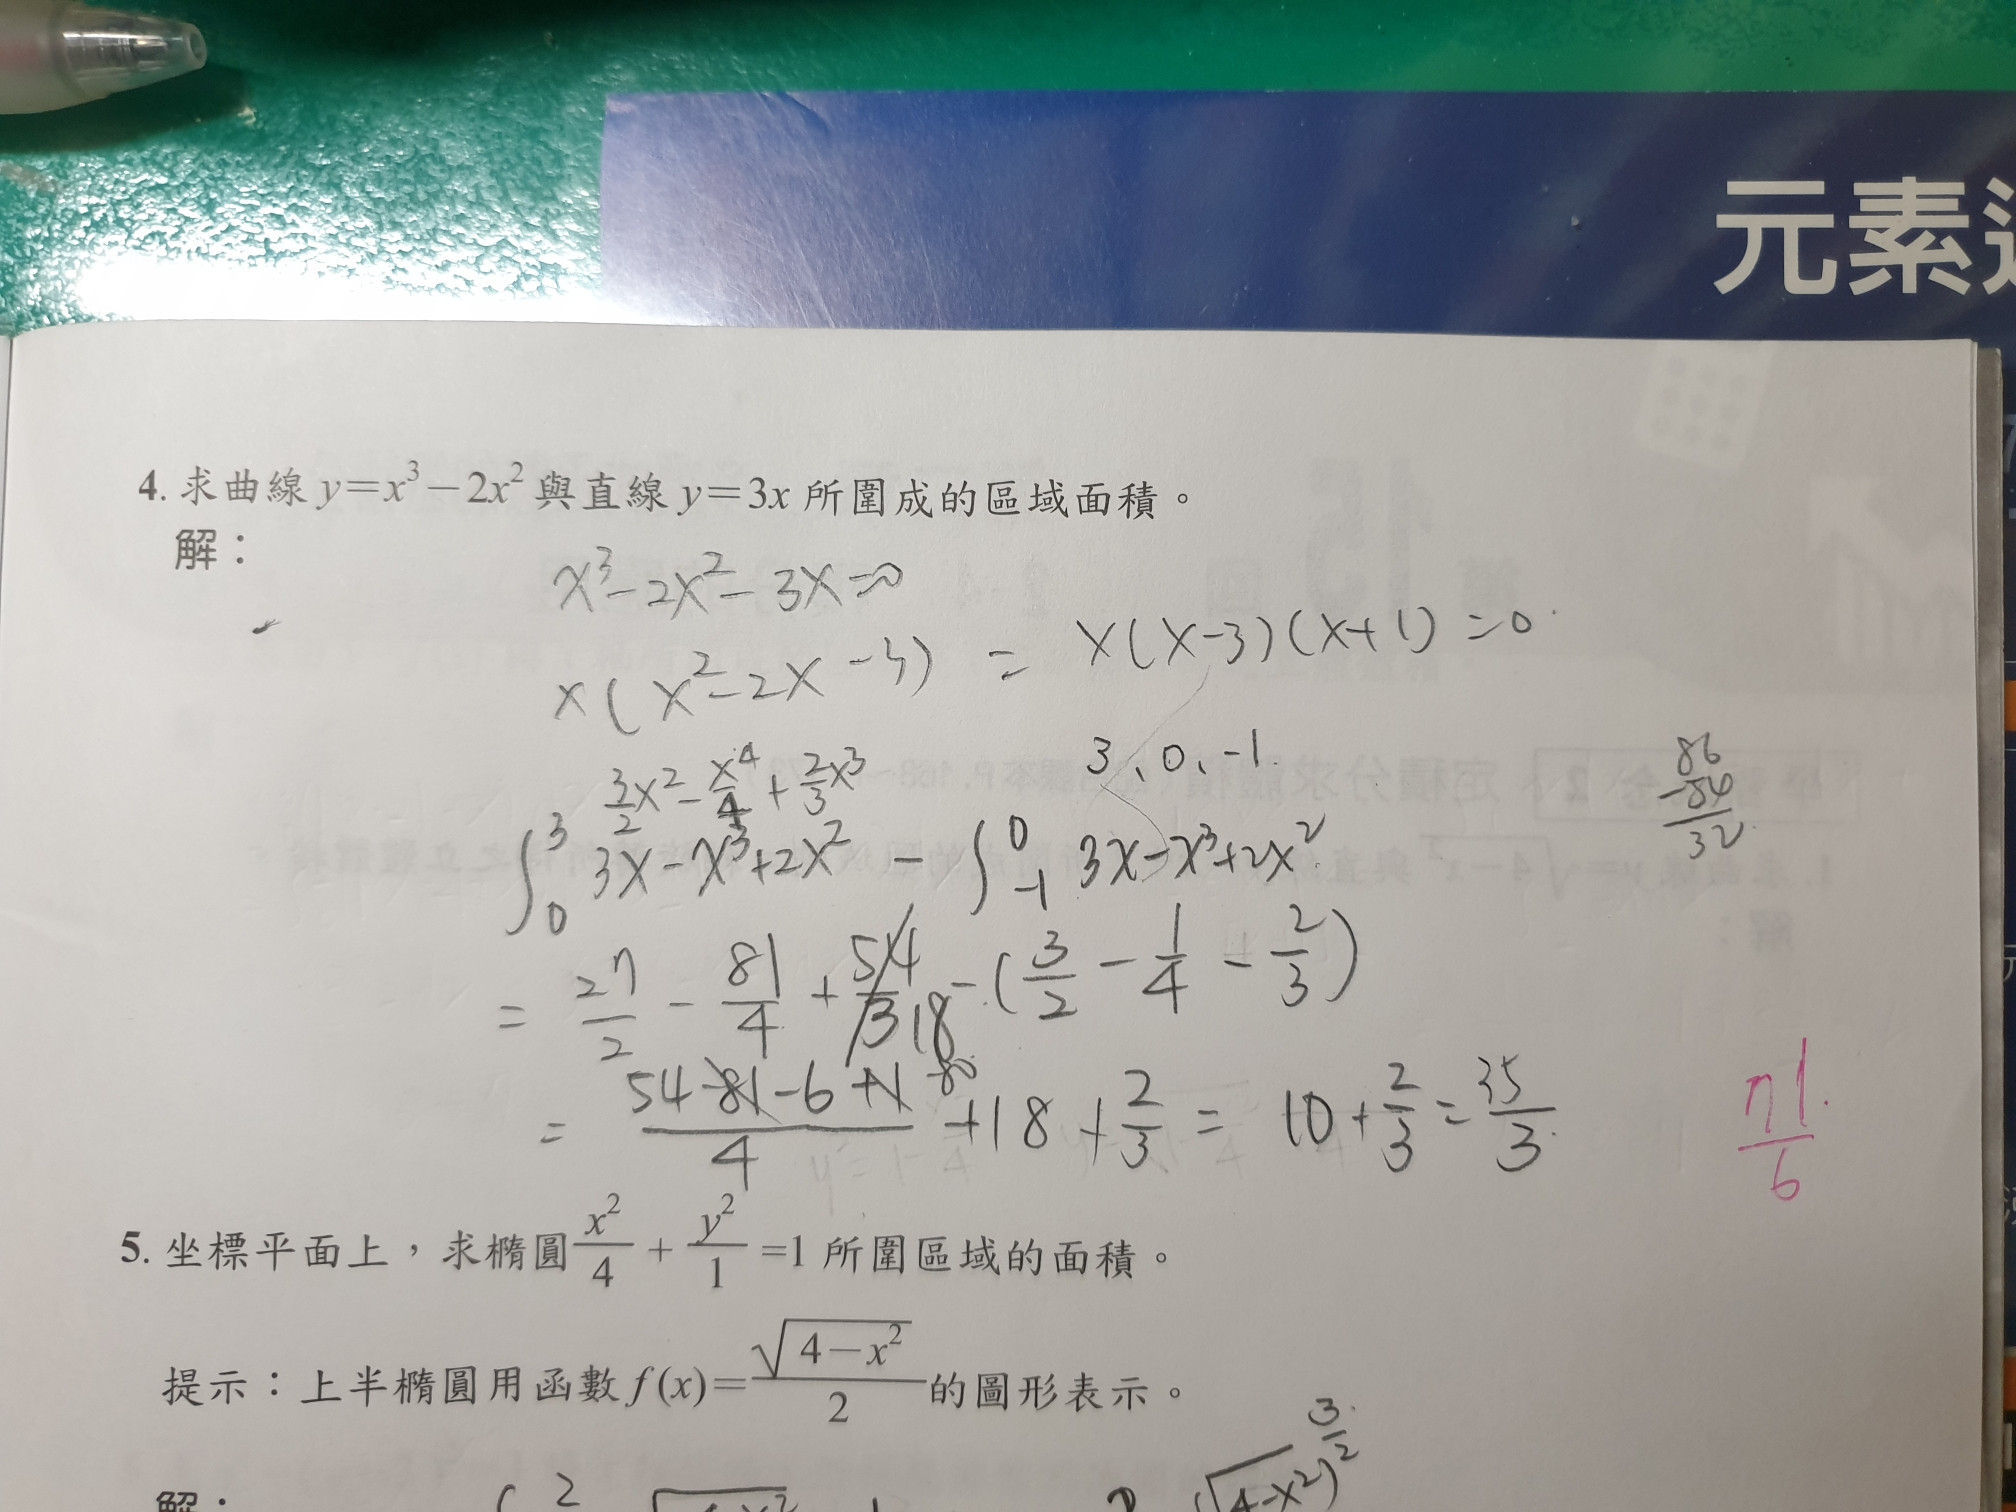 元素
4. 求曲線 y=x³-2x² 與直線 y=3x 所圍成的區域面積。
解：
x³-2x²-3x=0
x(x²-2x-3) = x(x-3)(x+1)=0
3、0、-1
3/2x²-x⁴/4+2/3x³
∫₀³ 3x-x³+2x² - ∫₋₁⁰ 3x-x³+2x²
86
-54
32
= 27/2 - 81/4 + 54/3 18 - (3/2 - 1/4 - 2/3)
= 54-81-6+1/4 +18+2/3 = 10+2/3 = 35/3
71/6
5. 坐標平面上，求橢圓 x²/4 + y²/1 =1 所圍區域的面積。
提示：上半橢圓用函數 f(x)=√(4-x²)/2 的圖形表示。
解：